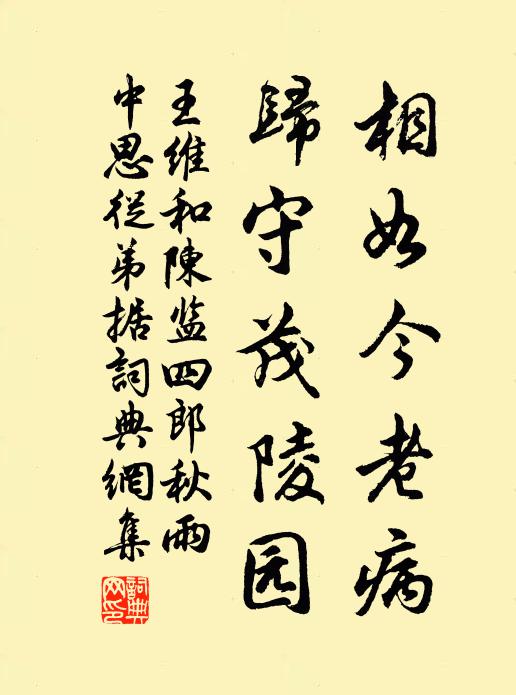 相如今老病
歸守茂陵园
王维和陳监四郎秋雨
中思從弟据詞典網集
詞典網印